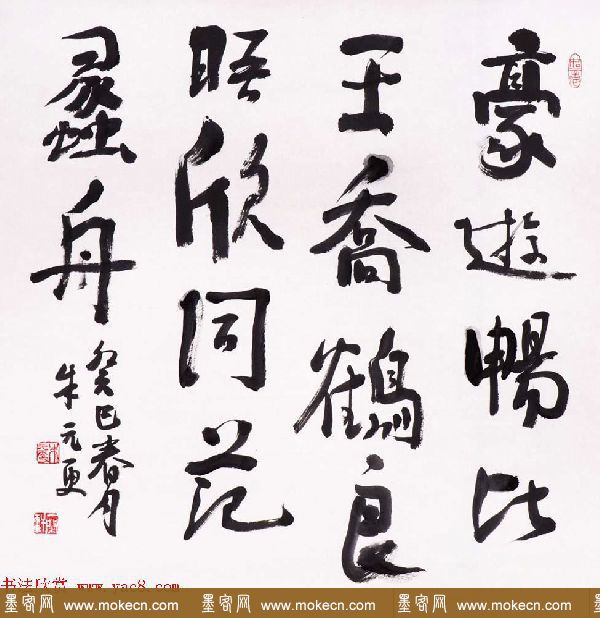 豪遊暢比
王喬鶴良
晤欣同范
蠡舟
癸巳春月
朱元更
书法欣赏 www.yac8.com
墨客网 www.mokecn.com 墨客网 www.mokecn.com 墨客网 www.mokecn.com